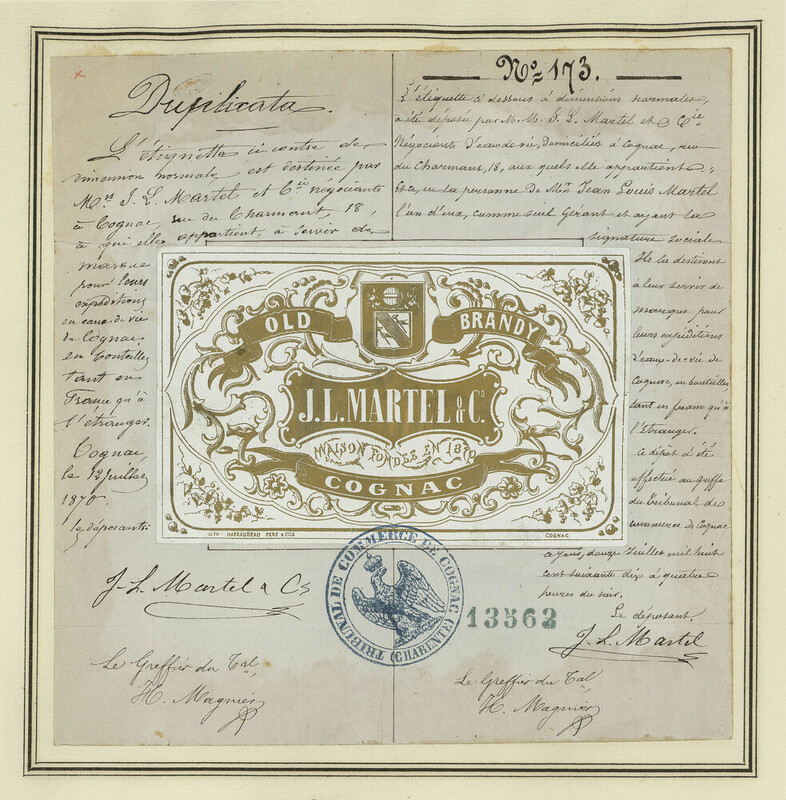 Duplicata.
L'étiquette ci contre de
dimension normale est destinée par
Mrs J. L. Martel et Cie négociants
à Cognac, rue du Charmont, 18,
à qui elle appartient, à servir de
marque
pour leurs
expéditions
en eaux-de-vie
de Cognac
en bouteilles
tant en
France qu'à
l'étranger.
Cognac,
le 12 Juillet
1870.
les déposants
J. L. Martel & Co
Le Greffier du Tal,
H. Magnier
No 173.
L'étiquette ci dessous à dimensions normales,
a été déposée par M. M. J. L. Martel et Cie
Négociants d'eau-de-vie, domiciliés à Cognac, rue
du Charmant, 18, aux quels elle appartient
Et ce, en la personne de Mr Jean Louis Martel
l'un d'eux, comme seul Gérant et ayant la
signature sociale
Ils la destinent
à leur servir de
marque pour
leurs expéditions
d'eaux-de-vie de
Cognac, en bouteilles
tant en france qu'à
l'Etranger.
Ce dépôt a été
effectué au greffe
du Tribunal de
commerce de Cognac
ce jour, douze Juillet mil huit
cent soixante dix à quatre
heures du soir.
Le déposant,
J. L. Martel
Le Greffier du Tal,
H. Magnier
OLD BRANDY
J.L. MARTEL & Co
MAISON FONDÉE EN 1870
COGNAC
LITH: HARRAUDEAU PERE & FILS
COGNAC
TRIBUNAL DE COMMERCE DE COGNAC (CHARENTE)
13562